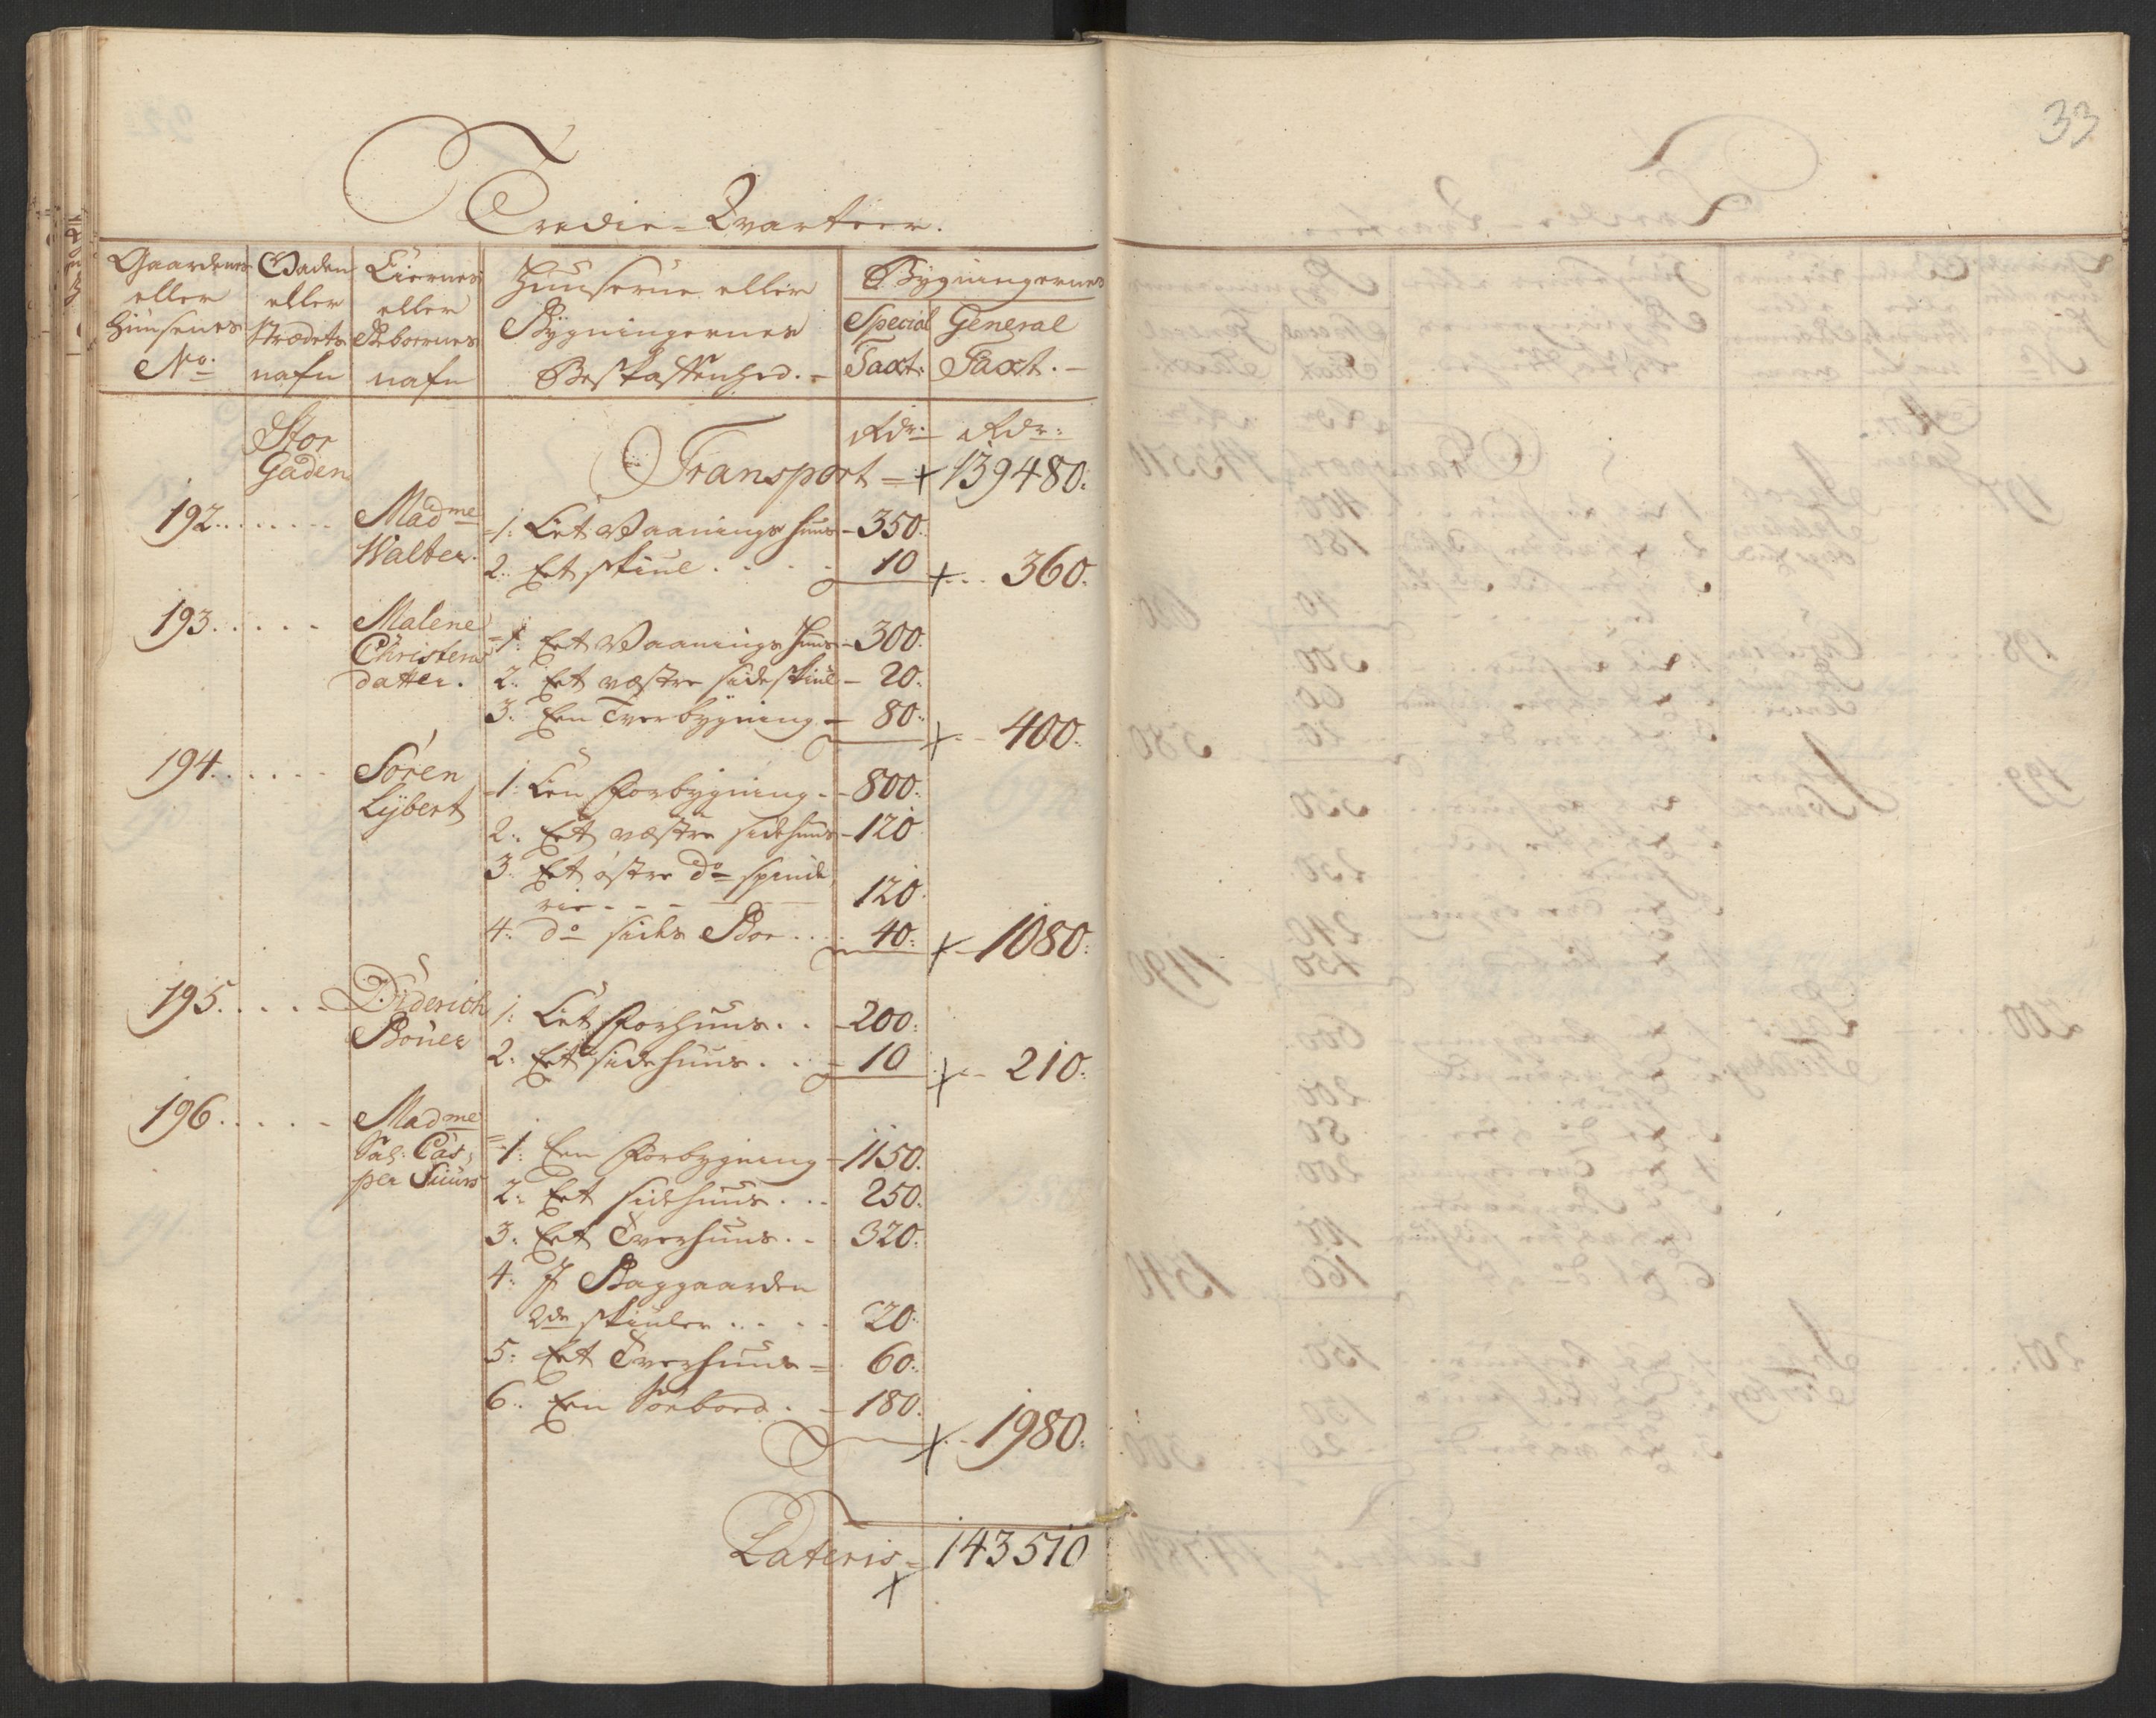 33
Tredie-Qvarteer.
Gaardenes eller Huusenes No.
Gaden eller Strædets nafn
Eiernes eller Beboernes nafn
Huuserne eller Bygningernes Beskaffenhed.
Bygningernes
Special Taxt:
General Taxt.
Stor Gaden
Rdr: Rdr:
Transport = 139480:
192 Madme Walter. 1: Eet Vaanings Huus 350.
2: Eet skiul 10 360.
193 Malene Christensdatter. 1: Eet Vaanings Huus 300:
2: Eet vestre side skiul 20:
3: Een Tverbygning 80: 400:
194 Sören Lÿbert 1: Een Forbygning 800:
2: Eet vestre sidehuus 120
3: Eet östre Do
120.
4: do sides Boe 40: 1080:
195 Diderich Böner 1: Eet Forhuus 200:
2: Eet sidehuus 10 210:
196 Madme Sal: Casper Siuurs 1: Een Forbygning 1150.
2: Eet sidehuus 250:
3: Eet Tverhuus 320:
4: I Baggaarden
2de skiuler 20:
5: Eet Tverhuus 60:
6: Een Söeboed 180. 1980:
Lateris = 143510